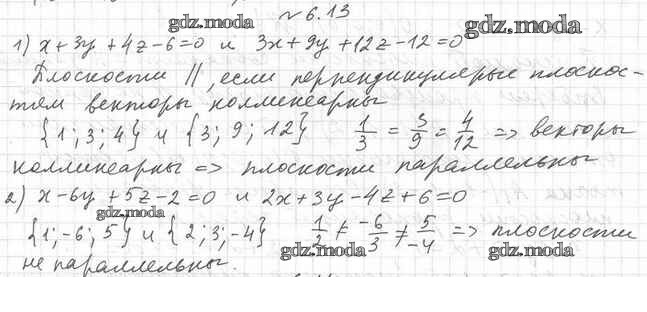 № 6.13
gdz.moda gdz.moda
1) x+3y+4z-6=0 и 3x+9y+12z-12=0
Плоскости ||, если перпендикулярые плоскос-
тям векторы коллинеарны
{1; 3; 4} и {3; 9; 12} 1/3 = 3/9 = 4/12 => векторы
коллинеарны => плоскости параллельны
2) x-6y+5z-2=0 и 2x+3y-4z+6=0
gdz.moda
{1; -6; 5} и {2; 3; -4} 1/2 ≠ -6/3 ≠ 5/-4 => плоскости
gdz.moda gdz.moda
не параллельны.